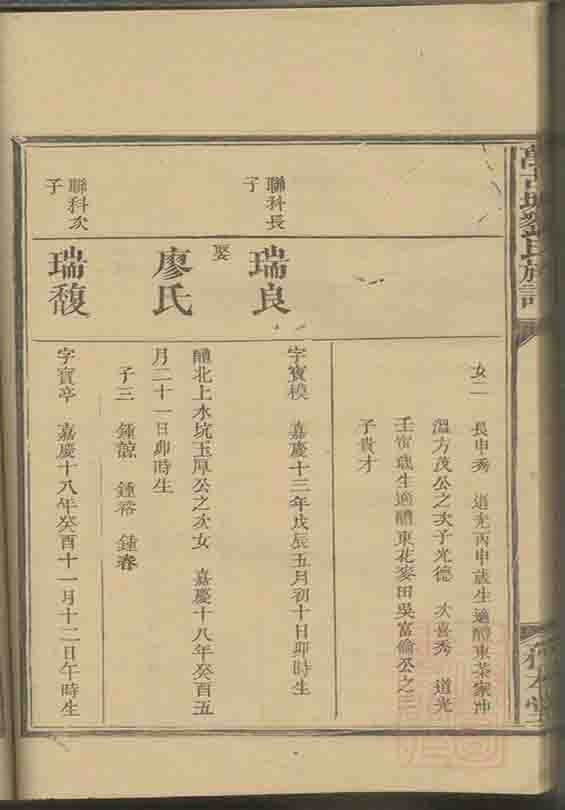 女二　長申秀　道光丙申歲生適醴東茶家冲
溫方茂公之次子光德　次喜秀　道光
壬寅歲生適醴東花麥田吳富倫公之三
子貴才
聯科長
子
瑞良
字寶模　嘉慶十三年戊辰五月初十日卯時生
娶
廖氏
醴北上水坑玉厚公之次女　嘉慶十八年癸酉五
月二十一日卯時生
子三　鍾諒　鍾裕　鍾春
聯科次
子
瑞馥
字寶亭　嘉慶十八年癸酉十一月十二日午時生